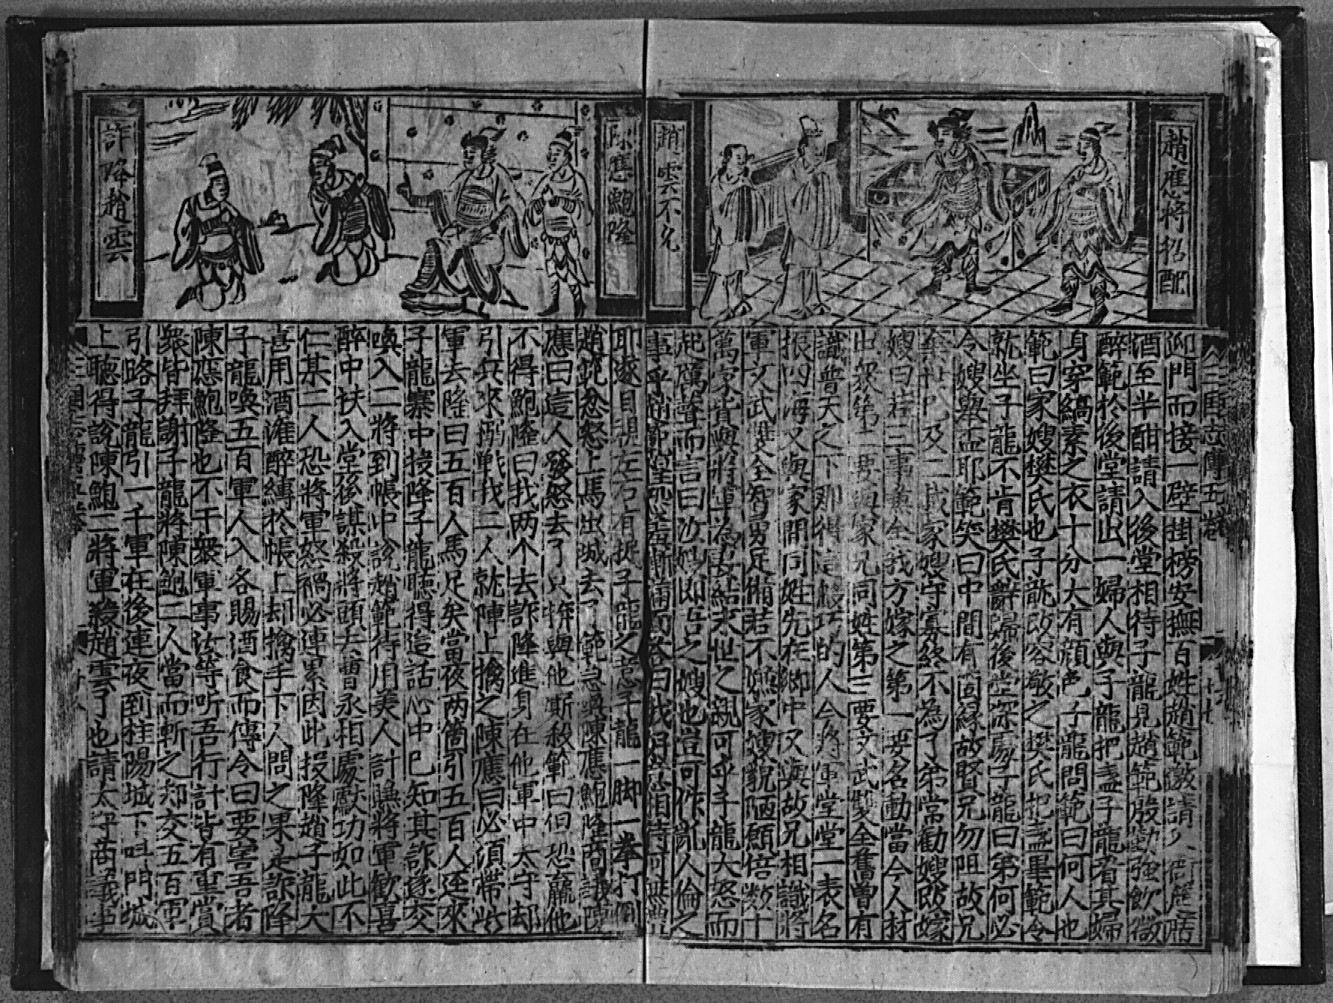 趙應將招配
趙雲不允
迎門而接一壁掛榜安撫百姓趙範邀請入衙
酒至半酣請入後堂相待子龍見趙範殷勤強飲微
醉範於後堂請出一婦人與子龍把盞子龍看其婦
身穿縞素之衣十分大有顏色子龍問範曰何人也
範曰家嫂樊氏也子龍改容敬之樊氏把盞畢範令
就坐子龍不肯樊氏辭歸後堂深處子龍曰弟何必
令嫂舉盃耶範笑曰中間有因緣故賢兄勿阻故兄
棄世已及二載家嫂守寡終不為了弟常勸嫂改嫁
嫂曰若三事兼全我方嫁之第一要名動當今人材
出眾第二要與家兄同姓第三要文武雙全舊曾有
識普天之下那得這般巧的人今將軍堂堂一表名
振四海又與家間同姓先在鄉中又與故兄相識將
軍文武雙全智勇足備若不嫌家嫂貌陋願倍數十
萬家資與將軍為妻結末世之親可乎子龍大怒而
起厲聲而言曰汝嫂即吾之嫂也豈可作亂人倫之
事乎趙範惶恐羞慚滿面答曰我好意相待何無禮
陳應鮑隆
詐降趙雲
耶遂目視左右有捉子龍之意子龍一脚一拳打倒
趙範忿怒上馬出城去了範急與陳應鮑隆商議陳
應曰這人發怒去了只拚與他厮殺範曰但恐贏他
不得鮑隆曰我两个去詐降進身在他軍中太守却
引兵來搦戰我二人就陣上擒之陳應曰必須帶些
軍去隆曰五百人馬足矣當夜两箇引五百人逕來
子龍寨中接降子龍聽得這話心中已知其詐遂交
喚入二將到帳中說趙範待用美人計賺將軍歡喜
醉中扶入堂後謀殺將頭去曹丞相處獻功如此不
仁某二人恐將軍怒禍必連累因此投降趙子龍大
喜用酒灌醉縛於帳上却擒手下人問之果是詐降
子龍喚五百軍人入各賜酒食而傳令曰要害吾者
陳應鮑隆也不干衆軍事汝等听吾行計皆有重賞
衆皆拜謝子龍將陳鮑二人當面斬之却交五百軍
引路子龍引一千軍在後連夜到桂陽城下叫門城
上聽得說陳鮑二將軍殺趙雲了也請太守商議事